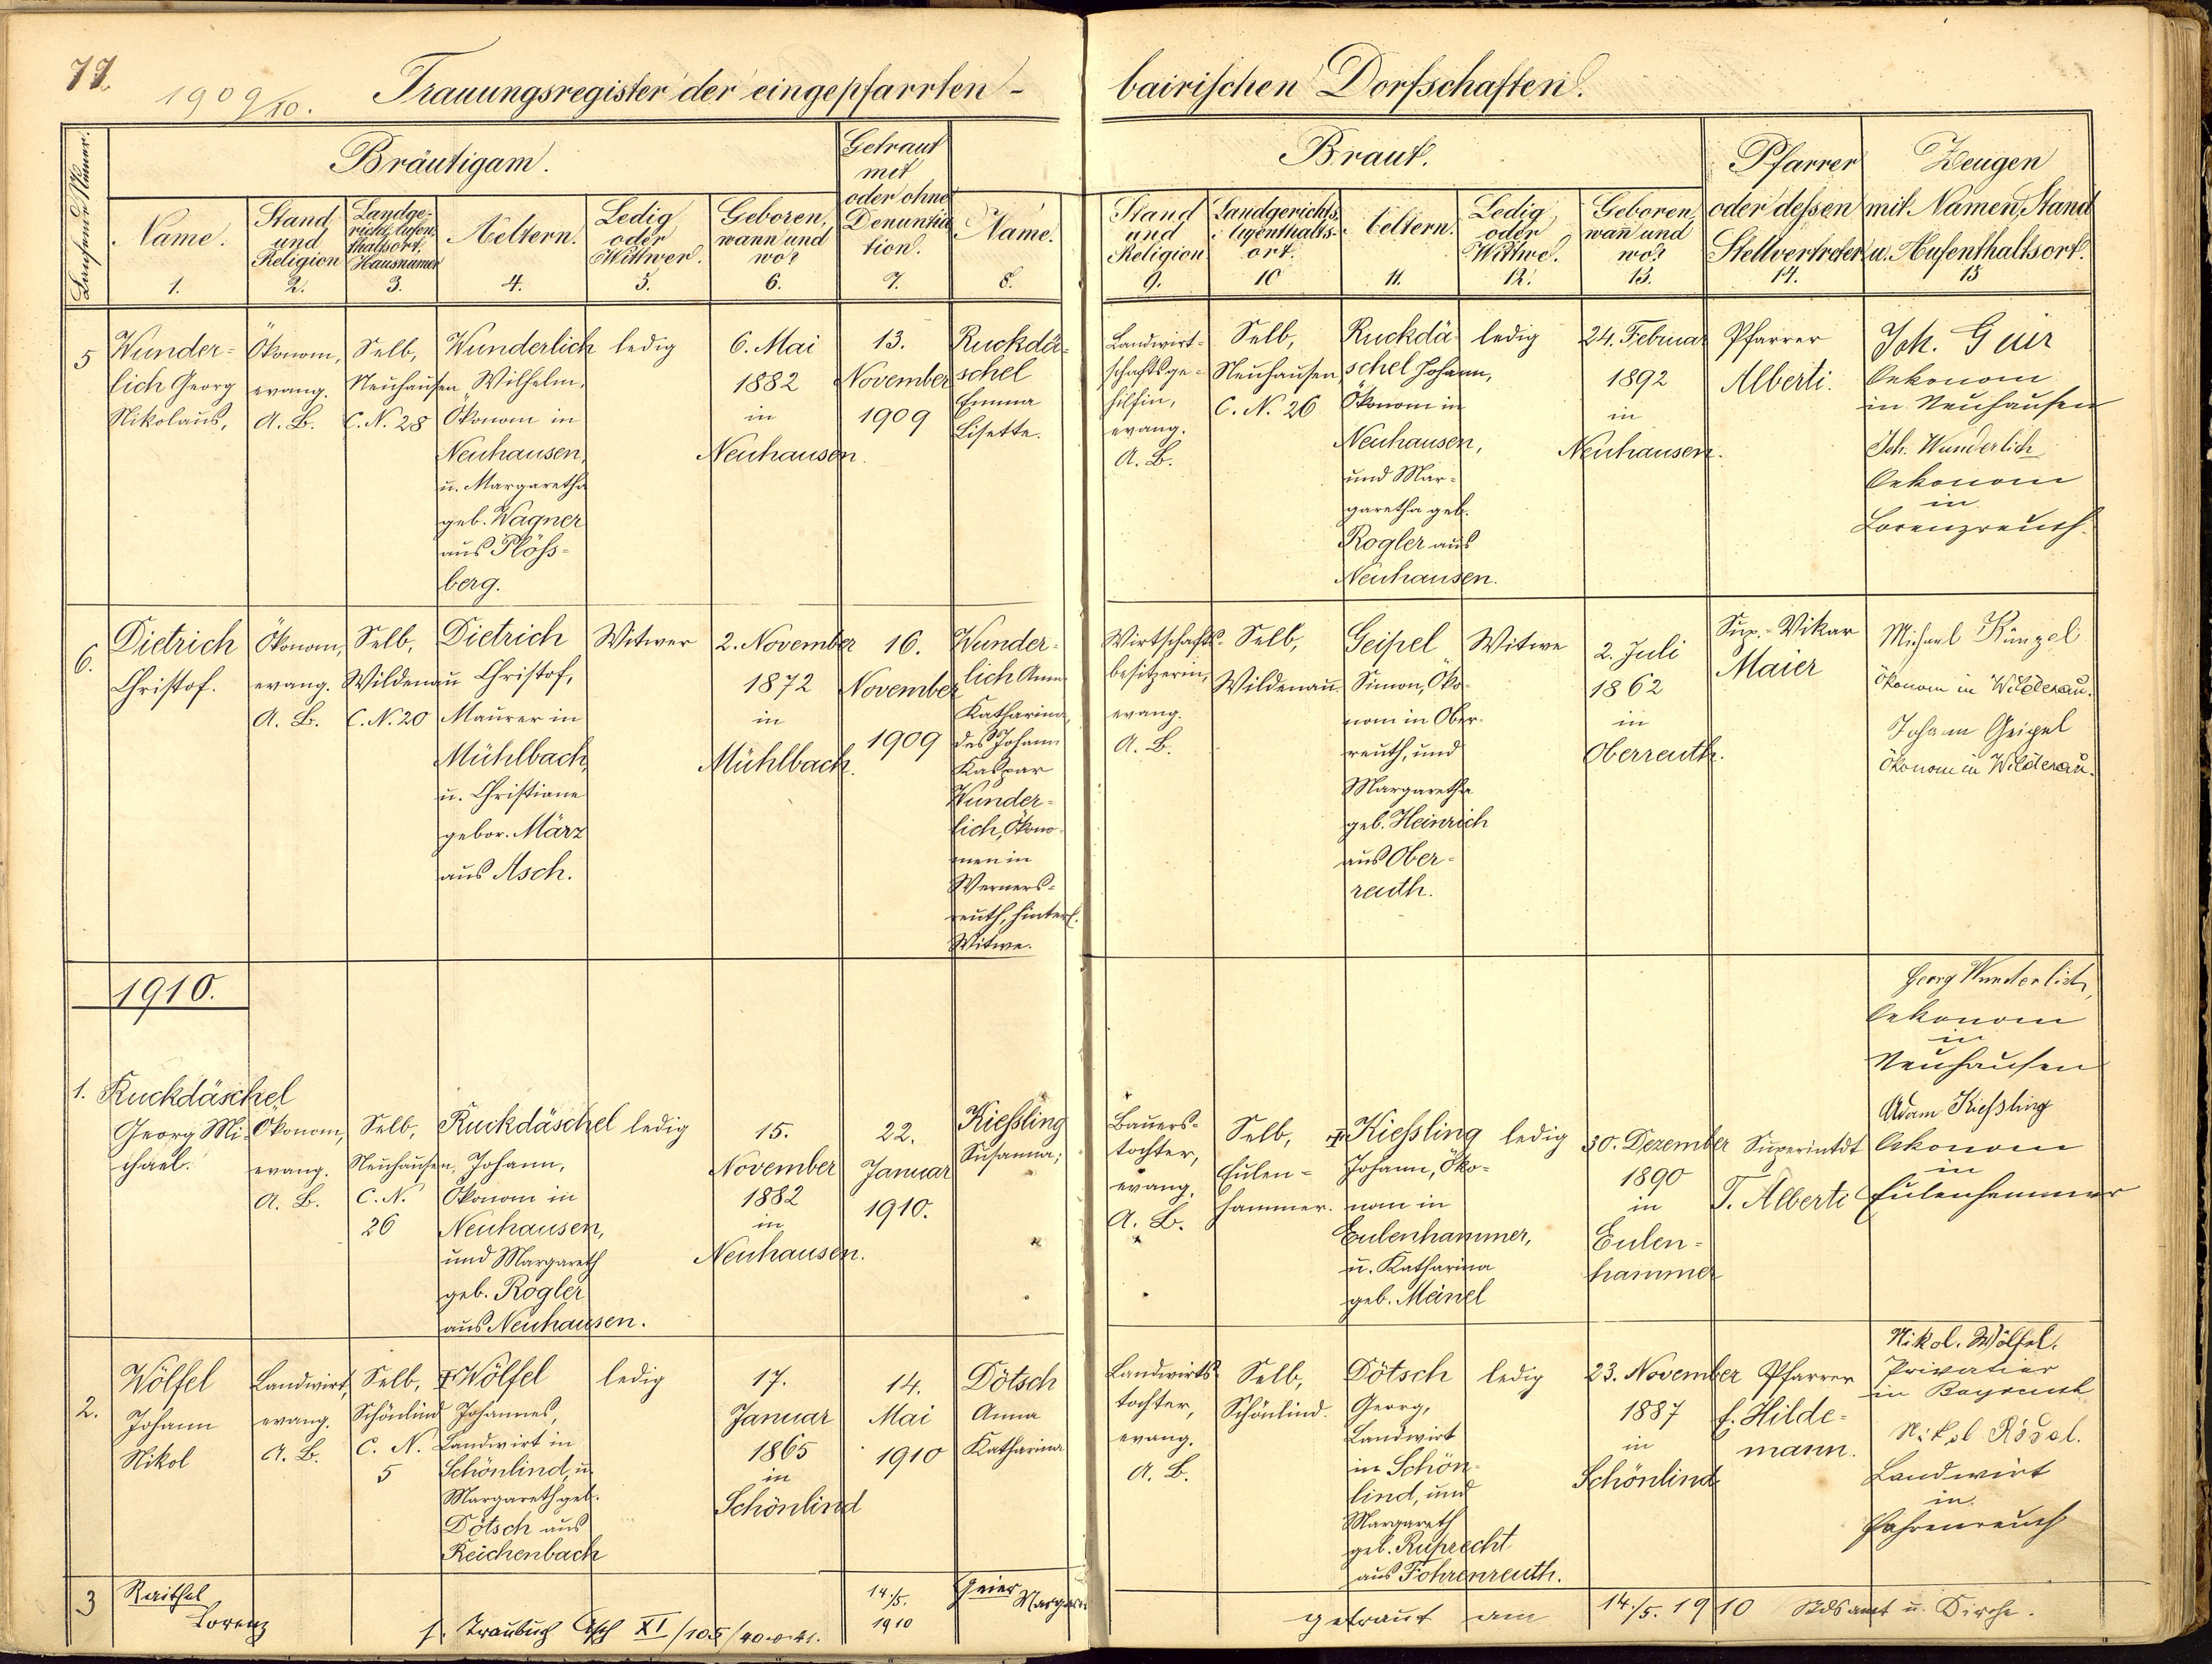 77.
1909/10.
Trauungsregister der eingepfarrten-
bairischen Dorfschaften.
Laufende Numer.
Bräutigam.
Getraut
mit
oder ohne
Denuntia
tion.
7.
Name.
1.
Stand
und
Religion
2.
Landge-
richts, Aufen
thaltsort,
Hausnumer
3.
Aeltern.
4.
Ledig
oder
Wittwer.
5.
Geboren,
wann und
wo?
6.
Name.
8.
Braut.
Stand
und
Religion
9.
Landgerichts
Aufenthalts-
ort.
10
Aeltern.
11.
Ledig
oder
Wittwe.
12.
Geboren
wan̄ und
wo?
13.
Pfarrer
oder dessen
Stellvertreter
14.
Zeugen
mit Namen, Stand
u. Aufenthaltsort.
15
5
Wunder-
lich Georg
Nikolaus,
Ökonom,
evang.
A. B.
Selb,
Neuhausen
C. N. 28
Wunderlich
Wilhelm,
Ökonom in
Neuhausen,
u. Margaretha
geb. Wagner
aus Plöss-
berg.
ledig
6. Mai
1882
in
Neuhausen.
13.
November
1909
Ruckdä-
schel
Emma
Lisette.
Landwirt-
schaftsge-
hilfin,
evang.
A. B.
Selb,
Neuhausen
C. N. 26
Ruckdä
schel Johann,
Ökonom in
Neuhausen,
und Mar-
garetha geb.
Rogler aus
Neuhausen.
ledig
24. Februar
1892
in
Neuhausen.
Pfarrer
Alberti.
Joh. Geier
Oekonom
in Neuhausen
Joh. Wunderlich
Oekonom
in
Lorenzreuth.
6.
Dietrich
Christof.
Ökonom,
evang.
A. B.
Selb,
Wildenau
C. N. 20
Dietrich
Christof,
Maurer in
Mühlbach,
u. Christiane
gebor. März
aus Asch.
Witwer
2. November
1872
in
Mühlbach.
16.
November
1909
Wunder-
lich Anna
Katharina,
des Johann
Kaspar
Wunder-
lich, Ökono-
men in
Werners-
reuth, hinterl.
Witwe.
Wirtschafts-
besitzerin,
evang.
A. B.
Selb,
Wildenau.
Geipel
Simon, Öko-
nom in Ober-
reuth, und
Margaretha
geb. Heinrich
aus Ober-
reuth.
Witwe
2. Juli
1862
in
Oberreuth.
Sup.-Vikar
Maier
Michael Künzel
Ökonom in Wildenau.
Johann Geipel
Ökonom in Wildenau.
1910.
1.
Ruckdäschel
Georg Mi-
chael.
Ökonom,
evang.
A. B.
Selb,
Neuhausen,
C. N.
26
Ruckdäschel
Johann,
Ökonom in
Neuhausen,
und Margareth
geb. Rogler
aus Neuhausen.
ledig
15.
November
1882
in
Neuhausen.
22.
Januar
1910.
Kiessling
Susanna;
Bauers-
tochter,
evang.
A. B.
Selb,
Eulen-
hammer.
Kiessling
Johann, Öko-
nom in
Eulenhammer,
u. Katharina
geb. Meinel
ledig
30. Dezember
1890
in
Eulen-
hammer
Superintdt
T. Alberti
Georg Wunderlich,
Oekonom
in
Neuhausen
Adam Kiessling
Oekonom
in
Eulenhammer
2.
Wölfel
Johann
Nikol
Landwirt,
evang.
A. B.
Selb,
Schönlind
C. N.
5
Wölfel
Johannes,
Landwirt in
Schönlind, u.
Margareth geb.
Dötsch aus
Reichenbach
ledig
17.
Januar
1865
in
Schönlind
14.
Mai
1910
Dötsch
Anna
Katharina
Landwirts-
tochter,
evang.
A. B.
Selb,
Schönlind.
Dötsch
Georg,
Landwirt
in Schön-
lind, und
Margareth
geb. Ruprecht
aus Fohrenreuth.
ledig
23. November
1887
in
Schönlind
Pfarrer
E. Hilde-
mann.
Nikol. Wölfel.
Privatier
in Bayreuth
Nikol Rösel.
Landwirt
in
Fohrenreuth
3
Raithel
Lorenz
s. Traubuch Asch XI/105/40 u. 41.
14./5.
1910
Geier
getraut am 14./5. 1910 Stdsamt u. Kirche.